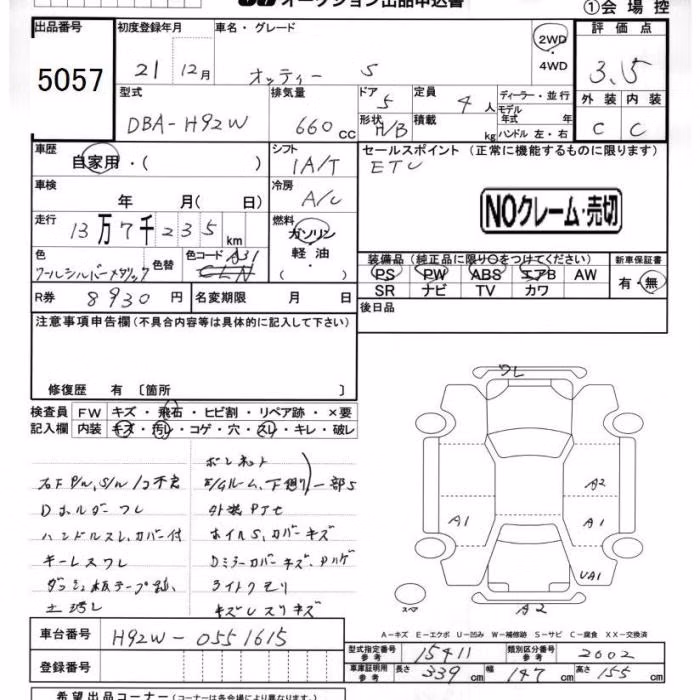 オークション出品申込書
①会場控
出品番号
5057
初度登録年月
21 12月
車名・グレード
オッティー S
2WD
・
4WD
評価点
3.5
外装 内装
C C
型式
DBA-H92W
排気量
660 cc
ドア
5
形状
H/B
定員
4 人
積載
kg
ディーラー・並行
モデル年式 年
ハンドル 左・右
車歴
自家用・( )
シフト
IA/T
セールスポイント (正常に機能するものに限ります)
ETC
NOクレーム・売切
車検
年 月( 日)
冷房
A/C
走行
13万7千235km
燃料
ガソリン
軽油
・
( )
色
クールシルバーメタリック
色替
色コード A31
CLN
装備品 (純正品に限り○をつけてください)
PS PW ABS エアB AW
SR ナビ TV カワ
新車保証書
有・無
R券 8930円
名変期限 月 日
後日品
注意事項申告欄 (不具合内容等は具体的に記入して下さい)
修復歴 有 〔箇所 〕
検査員
記入欄
FW キズ・飛石・ヒビ割・リペア跡・×要
内装 キズ・汚レ・コゲ・穴・スレ・キレ・破レ
Dホルダーワレ
ハンドルスレ、カバー付
キーレスワレ
ボンネット
E/Gルーム、下廻り 一部S
ホイルS、カバーキズ
Dミラーカバーキズ、Pハゲ
ライトクモリ
キズレスリキズ
ワレ
A1
A2
A1
UA1
A2
スマ
A-キズ E-エクボ U-凹み W-補修跡 S-サビ C-腐食 XX-交換済
車台番号
H92W-0551615
登録番号
型式指定番号
参考
15411
類別区分番号
参考
2002
車庫証明用
参考
長さ 339cm 幅 147cm 高さ 155cm
希望出品コーナー (コーナーは各会場により異なります)